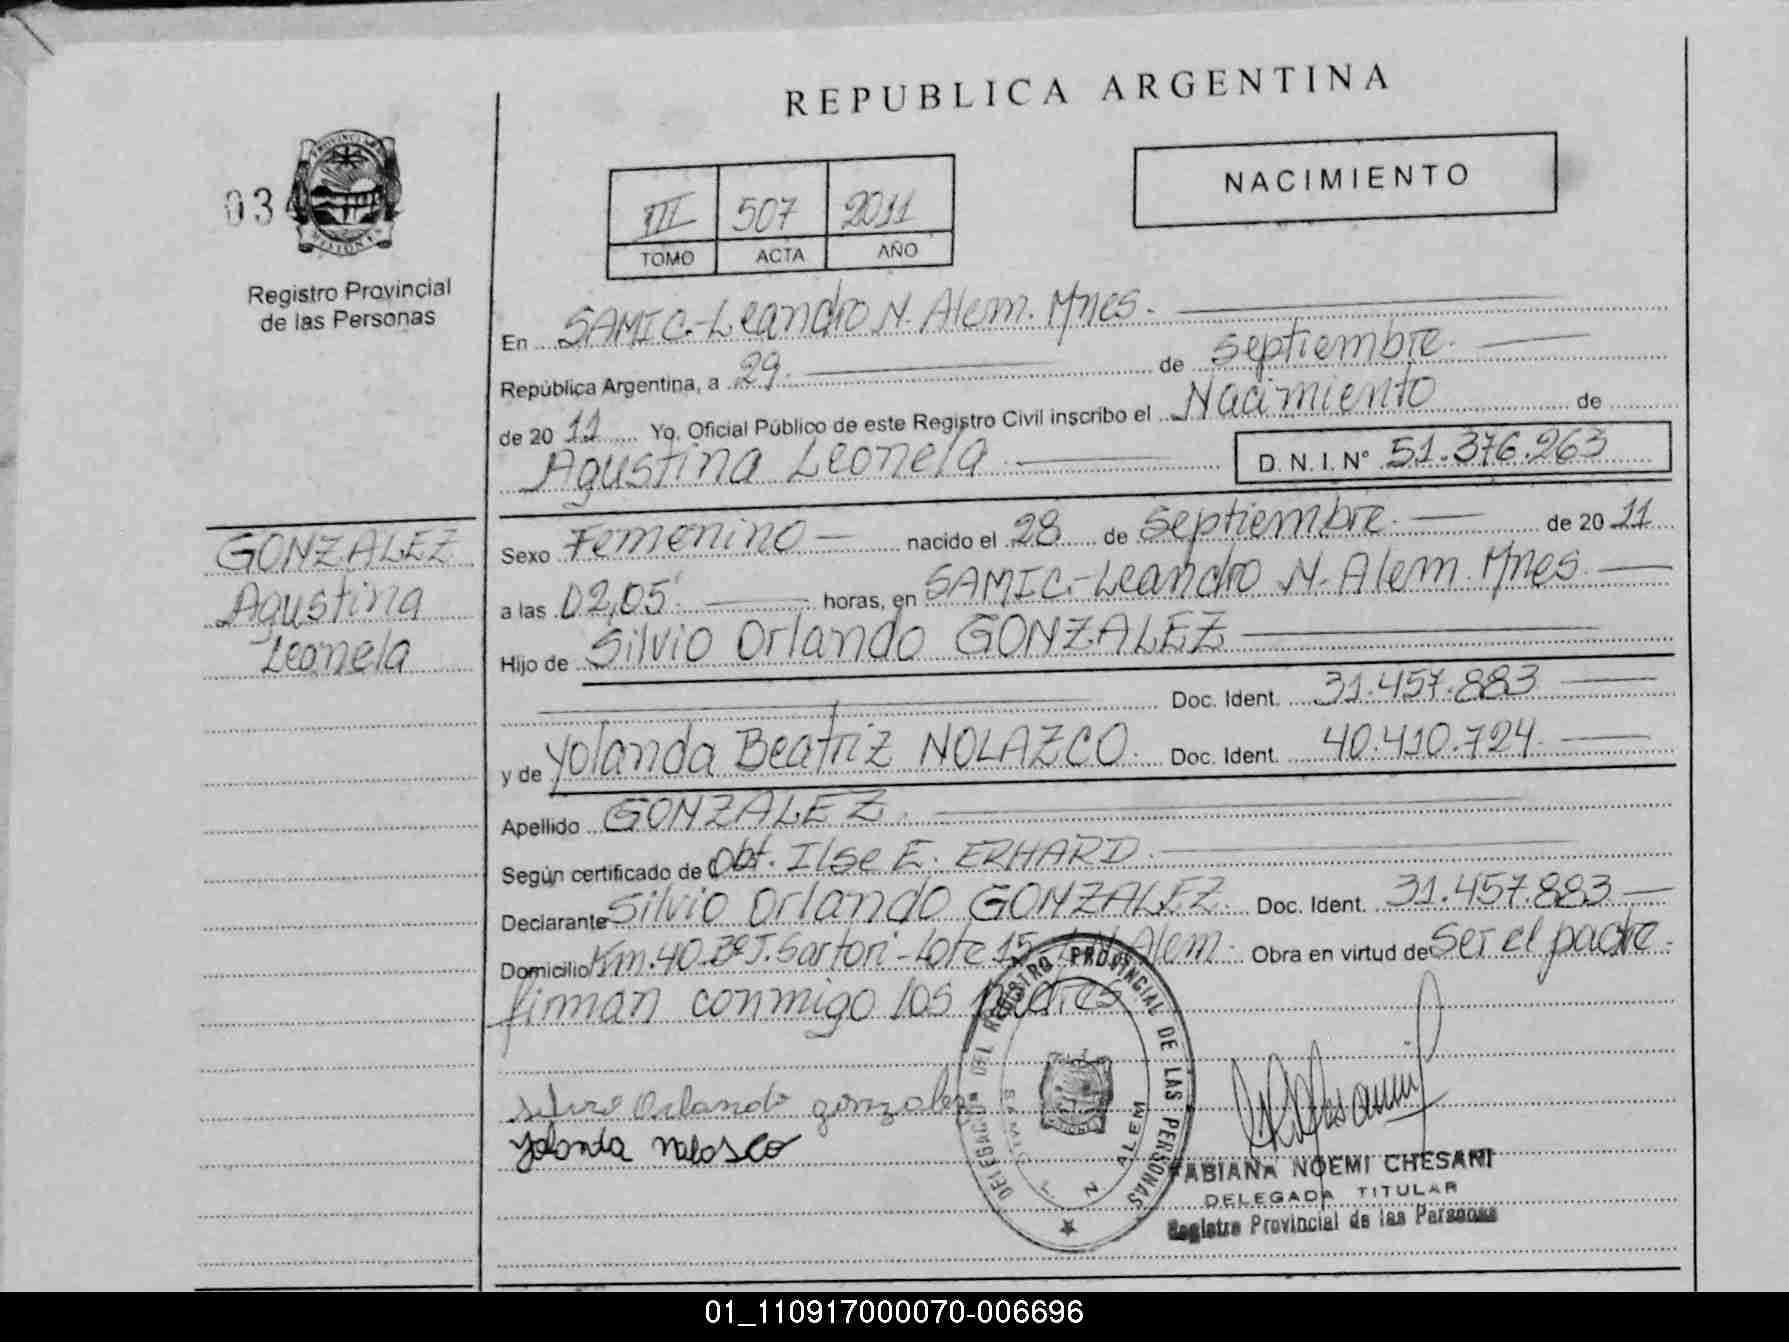 REPUBLICA ARGENTINA
034
PROVINCIA DE
MISIONES
Registro Provincial
de las Personas
III 507 2011
TOMO ACTA AÑO
NACIMIENTO
En SAMIC.-Leandro N. Alem. Mnes.
República Argentina, a 29. de septiembre.
de 2011 Yo, Oficial Público de este Registro Civil inscribo el Nacimiento de
Agustina Leonela D.N.I. Nº 51.376.263
GONZALEZ
Agustina
Leonela
Sexo Femenino nacido el 28 de septiembre. de 2011
a las 02,05' horas, en SAMIC.-Leandro N. Alem. Mnes.
Hijo de Silvio Orlando GONZALEZ
Doc. Ident. 31.457.883
y de Yolanda Beatriz NOLAZCO. Doc. Ident. 40.410.724.
Apellido GONZALEZ.
Según certificado de Obt. Ilse E. ERHARD.
Declarante Silvio Orlando GONZALEZ. Doc. Ident. 31.457.883
Domicilio Km.40.Bº J. Sartori-Lote 15 Alem. Obra en virtud de ser el padre.
firman conmigo los padres
Silvio Orlando gonzalez
Yolanda nolosco
DELEGACION DEL REGISTRO PROVINCIAL DE LAS PERSONAS
SAMIC
L. N. ALEM
FABIANA NOEMI CHESANI
DELEGADA TITULAR
Registro Provincial de las Personas
01_110917000070-006696